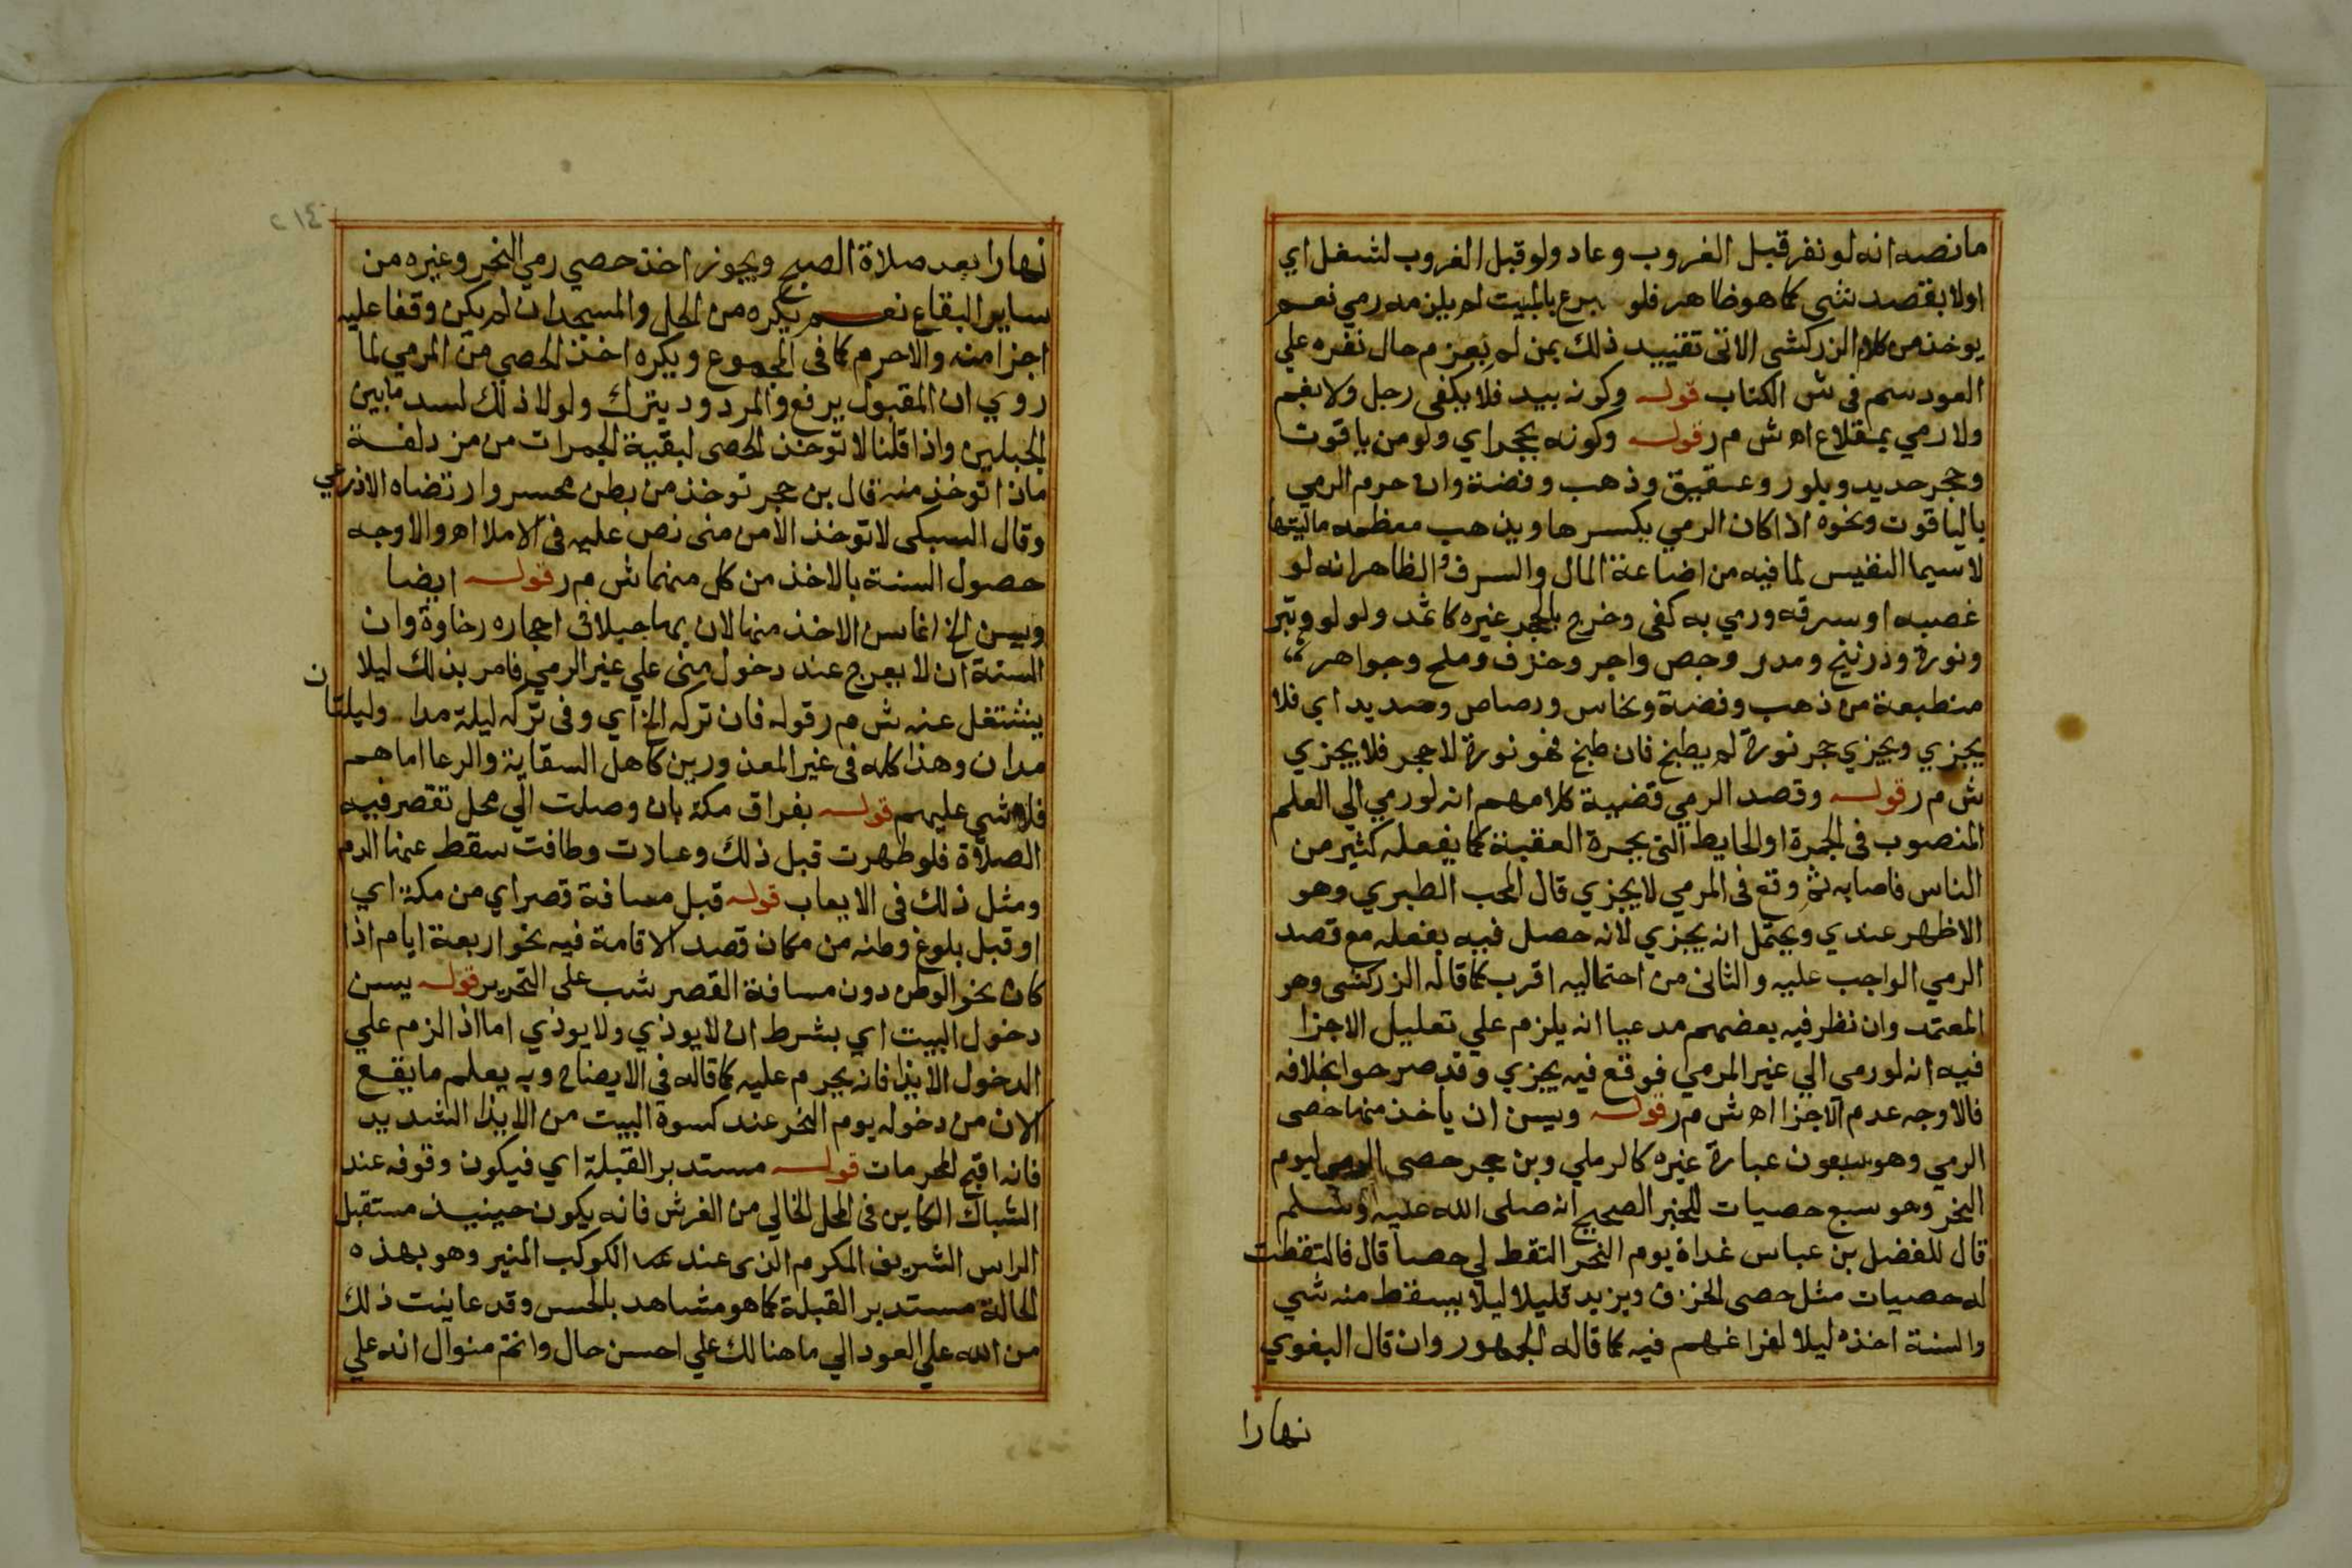 ما نصه انه لو نفر قبل الغروب وعاد ولو قبل الغروب لشغل اي
اولا بقصد شي كما هو ظاهر فلو تبرع بالمبيت لم يلزمه رمي نعم
يوخذ من كلام الزركشي الاتي تقييد ذلك بمن لم يعزم حال نفره علي
العود سم في ش الكتاب قوله وكونه بيد فلا يكفي رجل ولا بفم
ولا رمي بمقلاع اه ش م ر قوله وكونه بحجر اي ولو من ياقوت
وحجر حديد وبلور وعقيق وذهب وفضة وان حرم الرمي
بالياقوت ونحوه اذا كان الرمي يكسرها ويذهب معظمه ماليتها
لاسيما النفيس لما فيه من اضاعة المال والسرف والظاهر انه لو
غصبه او سرقه ورمي به كفي وخرج بالحجر غيره كاثمد ولولو وتبر
ونورة وزرنيخ ومدر وجص واجر وخزف وملح وجواهر
منطبعة من ذهب وفضة ونحاس ورصاص وحديد اي فلا
يجزي ويجزي حجر نورة لم يطبخ فان طبخ فهو نورة لا حجر فلا يجزي
ش م ر قوله وقصد الرمي قضية كلامهم انه لو رمي الي العلم
المنصوب في الجمرة او الحايط التي بجمرة العقبة كما يفعله كثير من
الناس فاصابه ثم وقع في المرمي لا يجزي قال المحب الطبري وهو
الاظهر عندي ويحتمل انه يجزي لانه حصل فيه بفعله مع قصد
الرمي الواجب عليه والثاني من احتماليه اقرب كما قاله الزركشي وهو
المعتمد وان نظر فيه بعضهم مدعيا انه يلزم علي تعليل الاجزا
فيه انه لو رمي الي غير المرمي فوقع فيه يجزي وقد صرحوا بخلافه
فالاوجه عدم الاجزا اه ش م ر قوله ويسن ان ياخذ منها حصي
الرمي وهو سبعون عبارة غيره كالرملي وبن حجر حصي الرمي ليوم
النحر وهو سبع حصيات للخبر الصحيح انه صلي الله عليه وسلم
قال للفضل بن عباس غداة يوم النحر التقط لي حصا قال فالتقطت
له حصيات مثل حصي الخزف ويزيد قليلا ليلا يسقط منه شي
والسنة اخذه ليلا لفراغهم فيه كما قاله الجمهور وان قال البغوي
نهارا
٢١٤
نهارا بعد صلاة الصبح ويجوز اخذ حصي رمي النحر وغيره من
ساير البقاع نعم يكره من الحل والمسجد ان لم يكن وقفا عليه
اجزا منه والا حرم كما في المجموع ويكره اخذ الحصي من المرمي لما
روي ان المقبول يرفع والمردود يترك ولولا ذلك لسد ما بين
الجبلين واذا قلنا لا توخذ الحصي لبقية الجمرات من مزدلفة
فماذا توخذ منه قال بن حجر توخذ من بطن محسر وارتضاه الاذرعي
وقال السبكي لا توخذ الا من مني نص عليه في الاملا اه والاوجه
حصول السنة بالاخذ من كل منهما ش م ر قوله ايضا
ويسن الخ انما سن الاخذ منها لان بها جبلا في احجاره رخاوة وان
السنة ان لا يعرج عند دخول مني علي غير الرمي فامر بذلك ليلا
يشتغل عنه ش م ر قوله فان تركه الخ اي وفي تركه ليلة مدا وليلتان
مدان وهذا كله في غير المعذورين كاهل السقاية والرعا اما هم
فلا شي عليهم قوله بفراق مكة بان وصلت الي محل تقصر فيه
الصلاة فلو طهرت قبل ذلك وعادت وطافت سقط عنها الدم
ومثل ذلك في الايعاب قوله قبل مسافة قصر اي من مكة اي
او قبل بلوغ وطنه من مكان قصد الاقامة فيه نحو اربعة ايام اذا
كان نحو الوطن دون مسافة القصر شب علي التحرير قوله يسن
دخول البيت اي بشرط ان لا يوذي ولا يوذي اما اذا لزم علي
الدخول الايذا فانه يحرم عليه كما قاله في الايضاح وبه يعلم ما يقع
الان من دخوله يوم النحر عند كسوة البيت من الايذا الشديد
فانه اقبح المحرمات قوله مستدبر القبلة اي فيكون وقوفه عند
الشباك الكاين في المحل الخالي من الفرش فانه يكون حينيذ مستقبل
الراس الشريف المكرم الذي عند الكوكب المنير وهو بهذه
الحالة مستدبر القبلة كما هو مشاهد بالحس وقد عاينت ذلك
من الله علي العود الي ما هنالك علي احسن حال واتم منوال انه علي